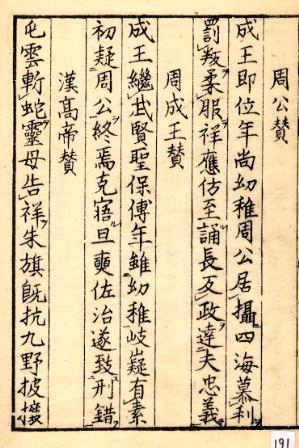 周公賛
成王即位年尚幼稚周公居攝四海慕利
罰叛柔服祥應仿至誦長反政達夫忠義
周成王賛
成王繼武賢聖保傅年雖幼稚岐嶷有素
初疑周公終焉克寤旦奭佐治遂致刑錯
漢高帝賛
屯雲斬蛇靈母告祥朱旗既抗九野披攘
191